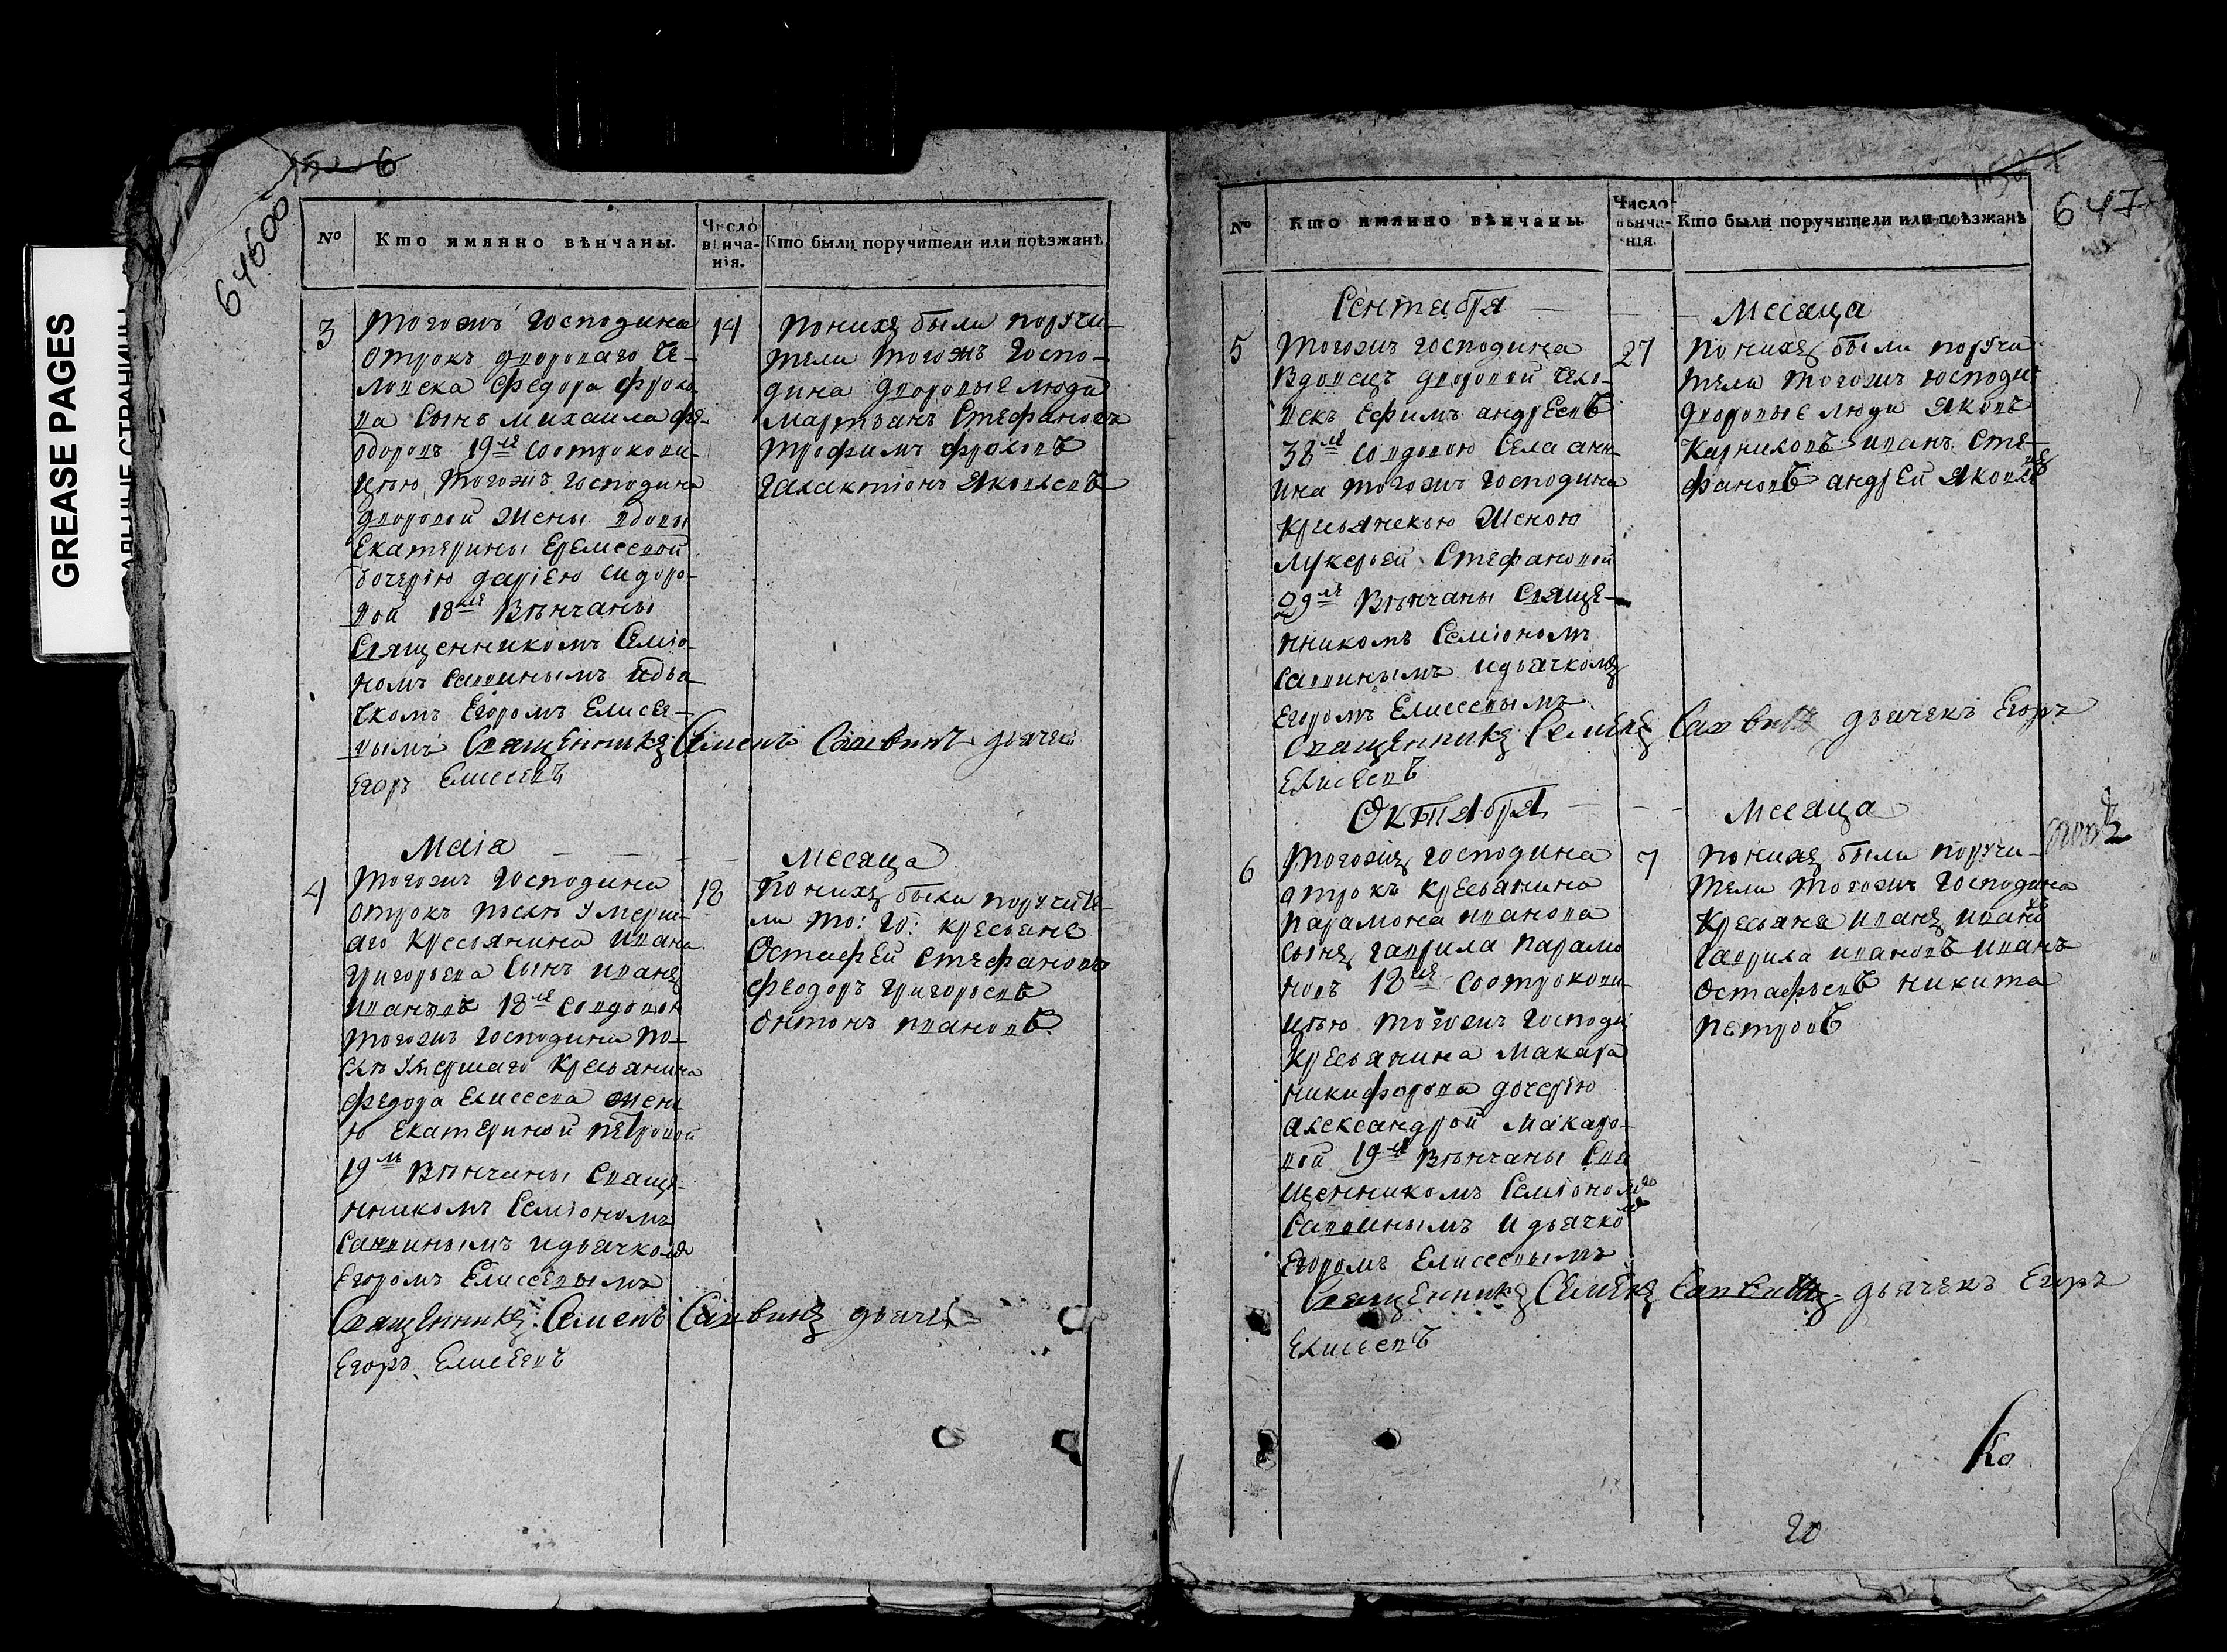 GREASE PAGES
6
646об
№
Кто имянно вѣнчаны.
Число вѣнча-нія.
Кто были поручители или поѣзжанѣ
3
Тогожъ господина
14
отрокъ двороваго че-
ловека федора фрола-
ва сынъ михаила фе-
доровъ 19 ле соотрокови-
цею тогожъ господина
дворовой жены вдовы
екатерины еремеевой
дочерію даріею сидоро-
вой 18 ле вѣнчаны
священникомъ семіо-
номъ саввинымъ идья-
чкомъ егоромъ елисее-
вымъ Священникъ Семенъ Саввинъ дьячек
егоръ елисеевъ
По нихъ были поручи-
тели тогожъ госпо-
дина дворовые люди
мартьянъ стефановъ
трофимъ фроловъ
галактіонъ яковлевъ
Маія
Месяца
4
Тогожъ господина
18
отрокъ послѣ умерш-
аго кресьянина ивана
григорьева сынъ иванъ
ивановъ 18 ле совдовою
тогожъ господина по-
слѣ умершаго кресьянина
федора елисеева жен-
ю екатериной петровой
19 ль вѣнчаны свяще-
нникомъ семіономъ
саввинымъ идьячкомъ
егоромъ елисеевымъ
Священникъ Семенъ Саввинъ дьячек
егоръ елисеевъ
По нихъ были поручите-
ли то: го: кресьяне
Остафей стефановъ
федоръ григорьевъ
антонъ ивановъ
647
№
Кто имянно вѣнчаны.
Число вѣнча-нія.
Кто были поручители или поѣзжанѣ
Сентября
Месяца
5
Тогожъ господина
27
вдовецъ дворовой чело-
векъ ефимъ андреевъ
38 ле совдовою села анн-
ина тогожъ господина
кресьянскою женою
лукерьей стефановой
29 ле вѣнчаны свяще-
нникомъ семіономъ
саввинымъ идьячкомъ
егоромъ елисеевымъ
Священникъ Семенъ Саввинъ дьячекъ егоръ
елисеевъ
По нихъ были поручи
тели тогожъ господи:
дворовые люди яковъ
иванъ сте-
фановъ андрей яковле
въ
Октября
Месяца
6
Тогожъ господина
7
отрокъ кресьянина
парамона иванова
сынъ гаврила парамо
новъ 18 ле соотрокови-
цею тогожъ господи
кресьянина макара
никифорова дочерію
александрой макаро-
вой 19 ле вѣнчаны свя
щенникомъ семіономъ
саввинымъ идьячко
егоромъ елисеевымъ
Священникъ Семенъ Саввинъ дьячекъ егоръ
елисеевъ
По нихъ были поручи-
тели тогожъ господина
кресьяне иванъ ивано
въ
гаврила ивановъ иванъ
остафьевъ никита
петровъ
Ко
20